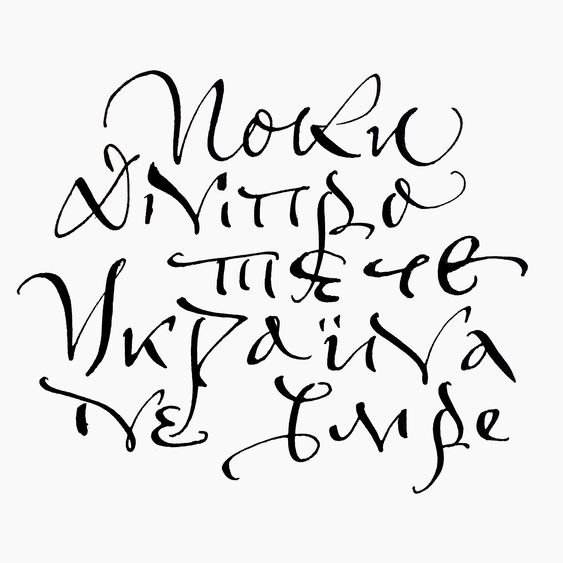 Поки
Дніпро
тече
Україна
не умре